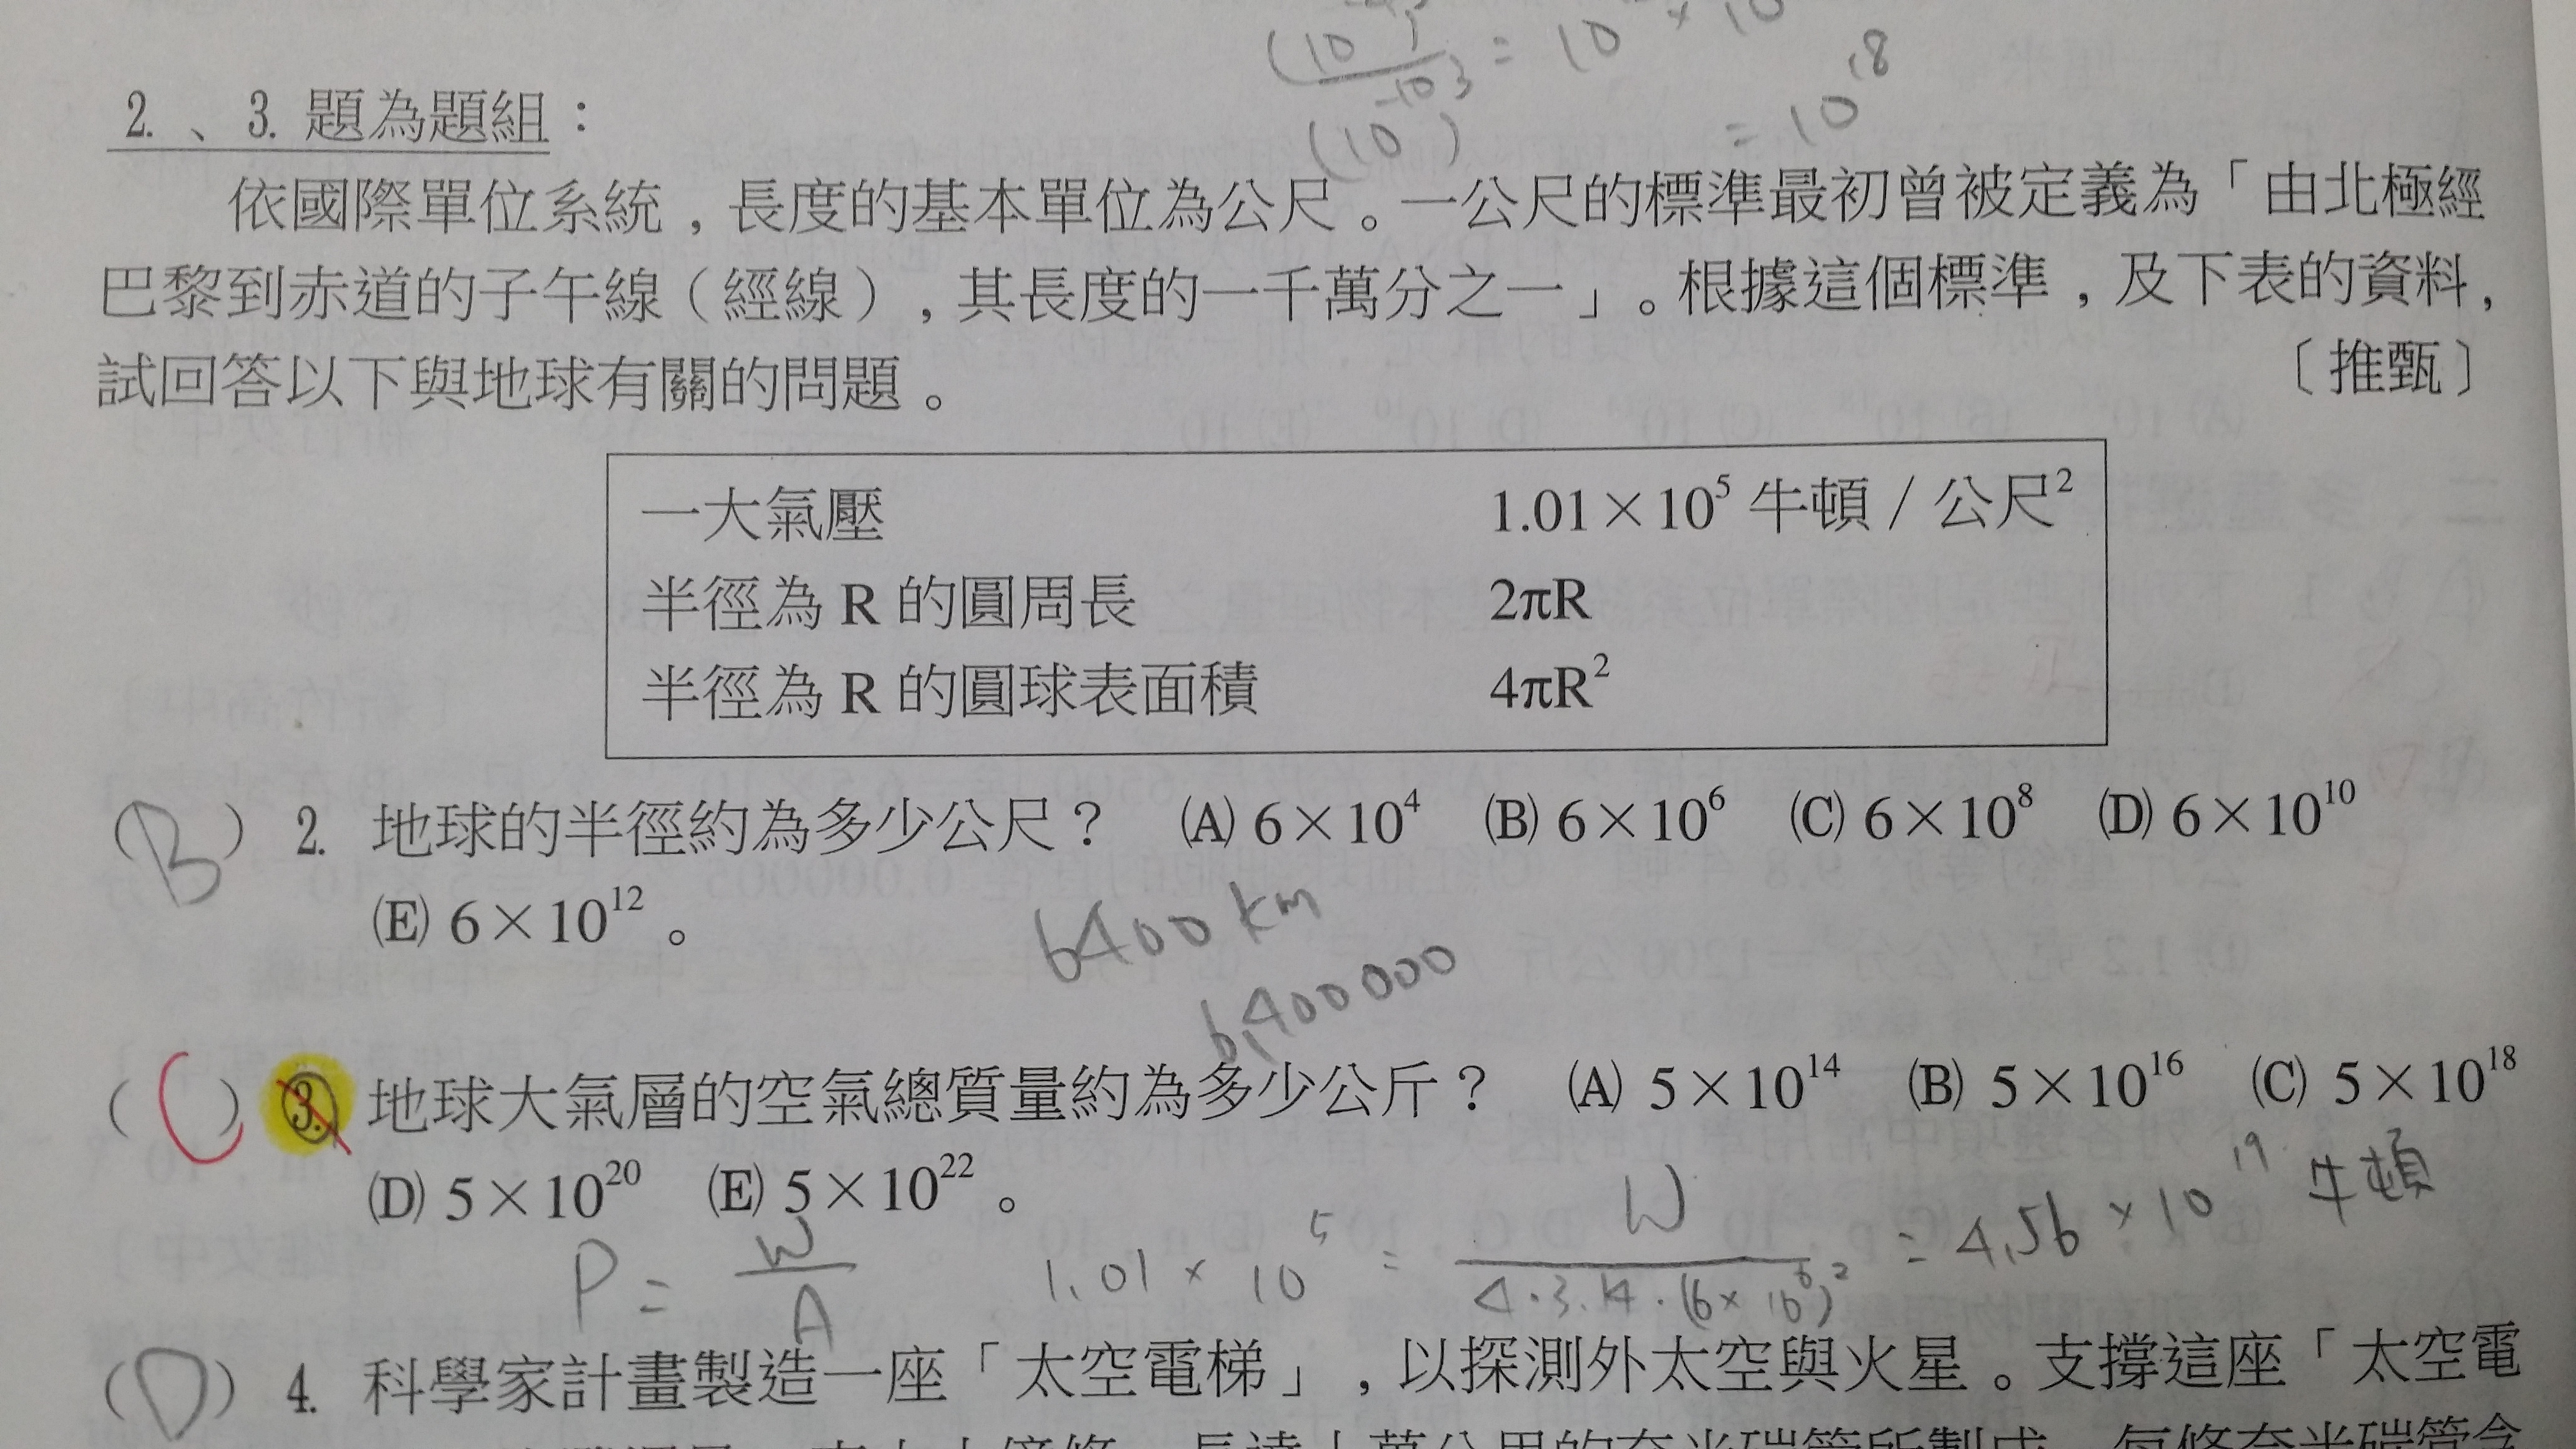 = 10¹⁸
2. 、3. 題為題組：
依國際單位系統，長度的基本單位為公尺。一公尺的標準最初曾被定義為「由北極經
巴黎到赤道的子午線（經線），其長度的一千萬分之一」。根據這個標準，及下表的資料，
試回答以下與地球有關的問題。 〔推甄〕
一大氣壓 1.01×10⁵ 牛頓／公尺²
半徑為 R 的圓周長 2πR
半徑為 R 的圓球表面積 4πR²
(B) 2. 地球的半徑約為多少公尺？ (A) 6×10⁴ (B) 6×10⁶ (C) 6×10⁸ (D) 6×10¹⁰
(E) 6×10¹²。
6400 km
6,400000
(C) 3. 地球大氣層的空氣總質量約為多少公斤？ (A) 5×10¹⁴ (B) 5×10¹⁶ (C) 5×10¹⁸
(D) 5×10²⁰ (E) 5×10²²。
P = W/A 1.01×10⁵ = W/4·3.14·(6×10⁶)² = 4.56×10¹⁹ 牛頓
(D) 4. 科學家計畫製造一座「太空電梯」，以探測外太空與火星。支撐這座「太空電